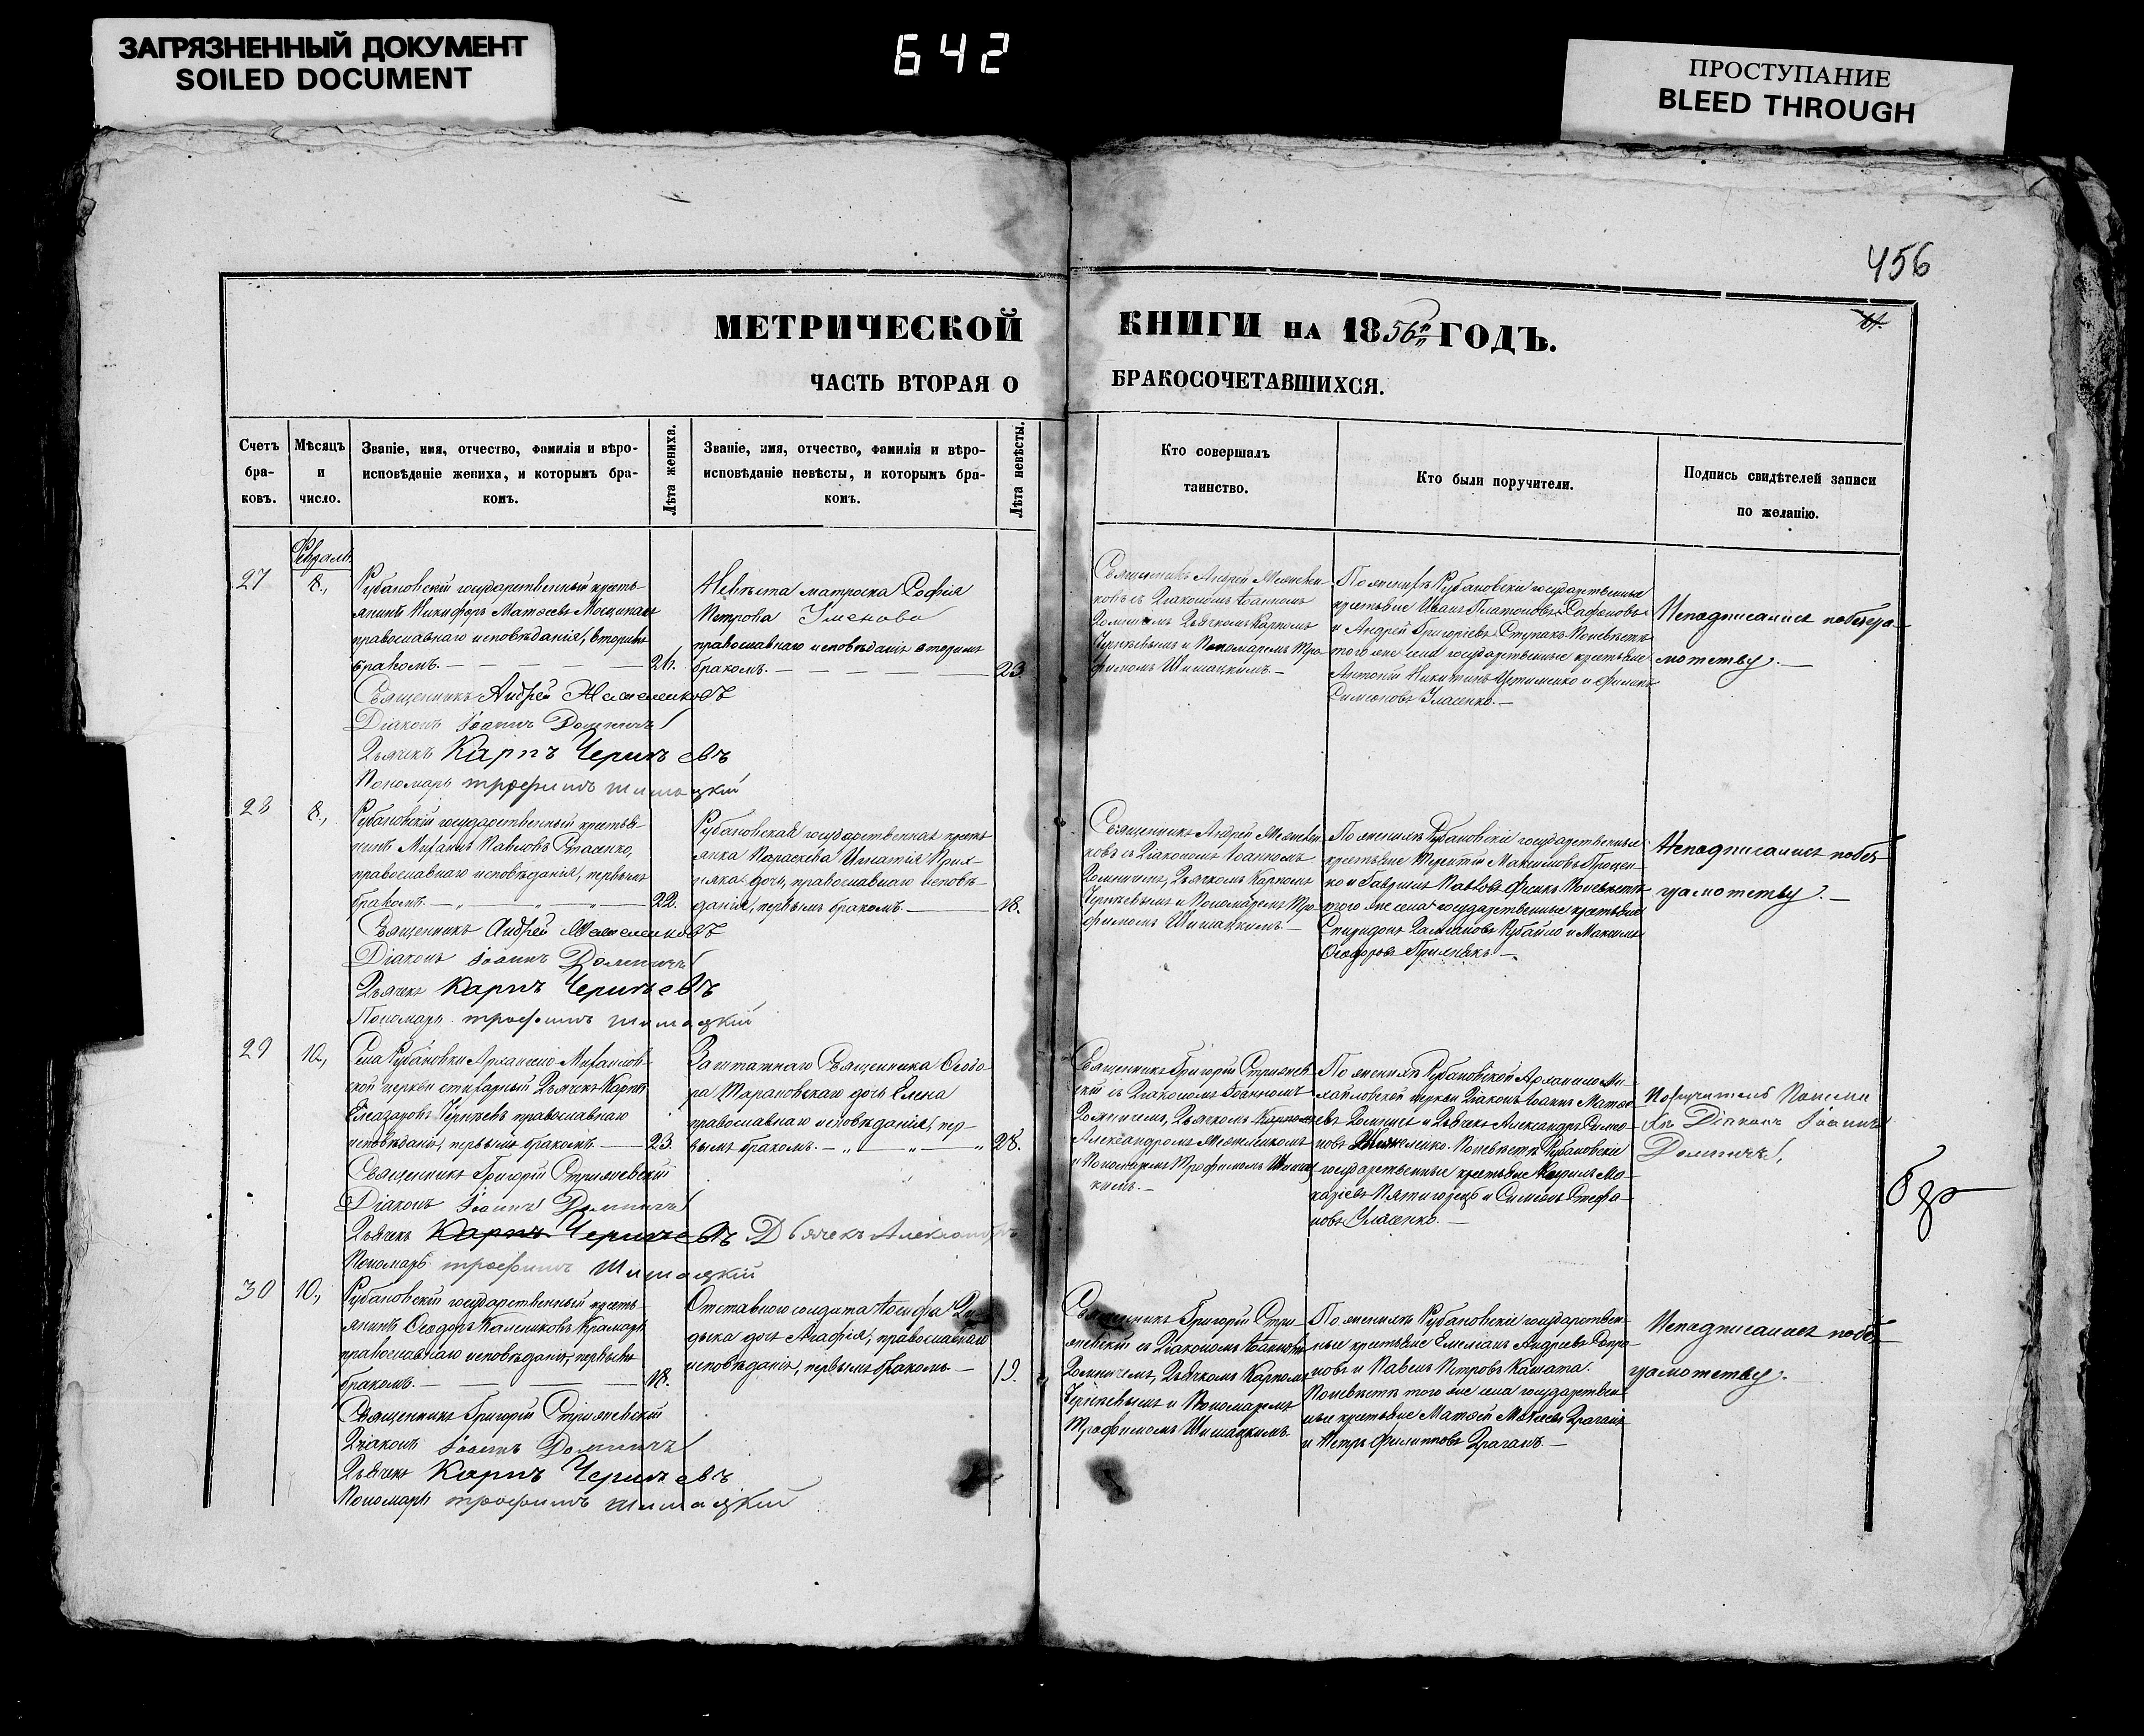 ЗАГРЯЗНЕННЫЙ ДОКУМЕНТ
SOILED DOCUMENT
642
ПРОСТУПАНИЕ
BLEED THROUGH
456
МЕТРИЧЕСКОЙ КНИГИ НА 1856й ГОДЪ.
ЧАСТЬ ВТОРАЯ О БРАКОСОЧЕТАВШИХСЯ.
Счетъ
бра-
ковъ.
Мѣсяцъ
и
число.
Званіе, имя, отчество, фамилія и вѣро-
исповѣданіе жениха, и которымъ бра-
комъ.
Лѣта жениха.
Званіе, имя, отчество, фамилія и вѣро-
исповѣданіе невѣсты, и которымъ бра-
комъ.
Лѣта невѣсты.
Кто совершалъ
таинство.
Кто были поручители.
Подпись свидѣтелей записи
по желанію.
Февраль
27
8.,
Рубановскій государственный кресть-
янинъ Никифоръ Матѳеевъ
православнаго исповѣданія, вторымъ
бракомъ.
26.
Священникъ Андрей
Діаконъ Іоаннъ Домничъ
Дьячекъ Карпъ Черневъ
Пономарь Трофимъ Шишацкій
матроса Софія
Петрова
православнаго исповѣданія вторымъ
бракомъ.
23.
Священникъ Андрей
ковъ съ Діакономъ Іоанномъ
Домничемъ Дьячкомъ Карпомъ
Черневымъ и Пономаремъ Тро-
фимомъ Шишацкимъ.—
По женихѣ Рубановскіе государственные
крестьяне Иванъ Платоновъ Сафоновъ
и Андрей Григорьевъ Ступакъ По невѣстѣ
того же села государственные крестьяне
Антоній Никитинъ Устименко и
Симеоновъ Уласенко.—
Неподписались по безгра-
мотству.—
28
8.,
Рубановскій государственный крестья-
нинъ Михаилъ Павловъ Стасенко,
православнаго исповѣданія, первымъ
бракомъ.
22.
Священникъ Андрей
Діаконъ Іоаннъ Домничъ
Дьячекъ Карпъ Черневъ
Пономарь Трофимъ Шишацкій
Рубановская государственная кресть-
янка Параскева Игнатія
дочь, православнаго исповѣ-
данія, первымъ бракомъ.
18.
Священникъ Андрей
ковъ съ Діакономъ Іоанномъ
Домничемъ, Дьячкомъ Карпомъ
Черневымъ и Пономаремъ Тро-
фимомъ Шишацкимъ—
По женихѣ Рубановскіе государственные
крестьяне Терентій Максимовъ Процен-
ко и Гавріилъ Павловъ По невѣстѣ
того же села государственные крестьяне
Спиридонъ и Максимъ
Ѳеодоровъ
Неподписались по без-
грамотству.—
29
10.,
Села Рубановки Архангело-Михайлов-
ской церкви стихарный Дьячекъ Карпъ
Елеазаровъ Черневъ православнаго
исповѣданія, первымъ бракомъ.
23.
Священникъ Григорій Стрижевскій
Діаконъ Іоаннъ Домничъ
Дьячекъ Карпъ Черневъ Дьячекъ Александръ
Пономарь Трофимъ Шишацкій
Заштатнаго Священника Ѳеодо-
ра Тарановскаго дочь Елена
православнаго исповѣданія, пер-
вымъ бракомъ.
28.
Священникъ Григорій Стрижев-
скій съ Діакономъ Іоанномъ
Домничемъ, Дьячкомъ Карпомъ
Александромъ
и Пономаремъ Трофимомъ Шишац-
кимъ.—
По женихѣ Рубановской Архангело-Ми-
хайловской церкви Діаконъ Іоаннъ Матѳе-
евъ Домничъ и Дьячекъ Александръ Симео-
новъ По невѣстѣ Рубановскіе
государственные крестьяне Кирилъ Ма-
каріевъ Пятигорецъ и Симеонъ Стефа-
новъ Уласенко.—
Поручитель По жени-
хѣ Діаконъ Іоаннъ
Домничъ,
30
10.,
Рубановскій государственный кресть-
янинъ Ѳеодоръ Калениковъ Крамаръ
православнаго исповѣданія, первымъ
бракомъ.
18.
Священникъ Григорій Стрижевскій
Діаконъ Іоаннъ Домничъ
Дьячекъ Карпъ Черневъ
Пономарь Трофимъ Шишацкій
Отставного солдата Іосифа
дочь Агафія, православнаго
исповѣданія, первымъ бракомъ—
19.
Священникъ Григорій Стри-
жевскій съ Діакономъ Іоанномъ
Домничемъ, Дьячкомъ Карпомъ
Черневымъ и Пономаремъ
Трофимомъ Шишацкимъ.
По женихѣ Рубановскіе государствен-
ные крестьяне Емеліанъ Андреевъ
и Павелъ Петровъ
По невѣстѣ того же села государствен-
ные крестьяне Матѳей Драганъ
и Петръ Филипповъ Драганъ.—
Неподписались по без-
грамотству.